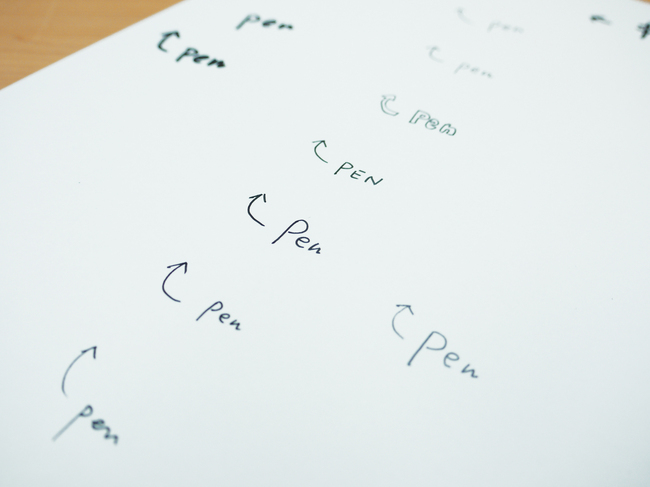 pen
pen
pen
pen
Pen
PEN
Pen
pen
Pen
pen